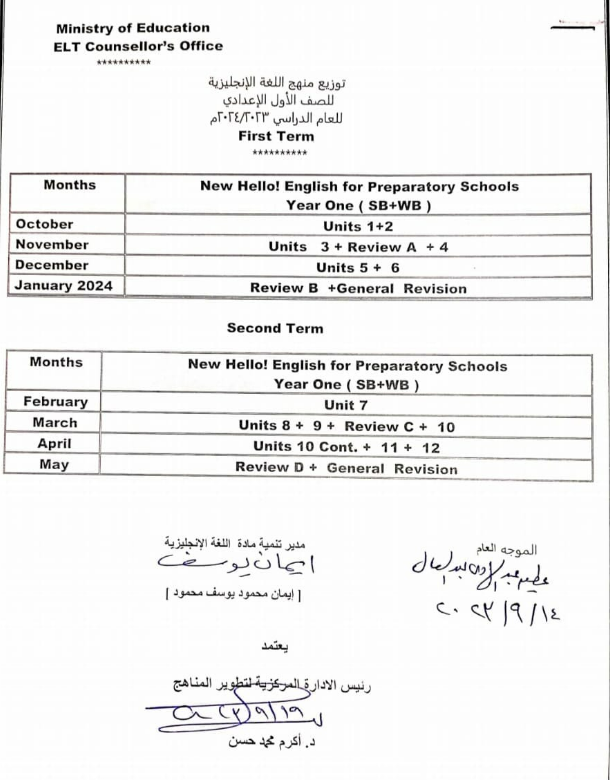 Ministry of Education
ELT Counsellor's Office
**********
توزيع منهج اللغة الإنجليزية
للصف الأول الإعدادي
للعام الدراسي ٢٠٢٤/٢٠٢٣م
First Term
**********
Months New Hello! English for Preparatory Schools
Year One ( SB+WB )
October Units 1+2
November Units 3 + Review A + 4
December Units 5 + 6
January 2024 Review B +General Revision
Second Term
Months New Hello! English for Preparatory Schools
Year One ( SB+WB )
February Unit 7
March Units 8 + 9 + Review C + 10
April Units 10 Cont. + 11 + 12
May Review D + General Revision
الموجه العام
٢٠٢٣/٩/١٤
مدير تنمية مادة اللغة الإنجليزية
ايمان يوسف
[ إيمان محمود يوسف محمود ]
يعتمد
رئيس الادارة المركزية لتطوير المناهج
د. أكرم محمد حسن